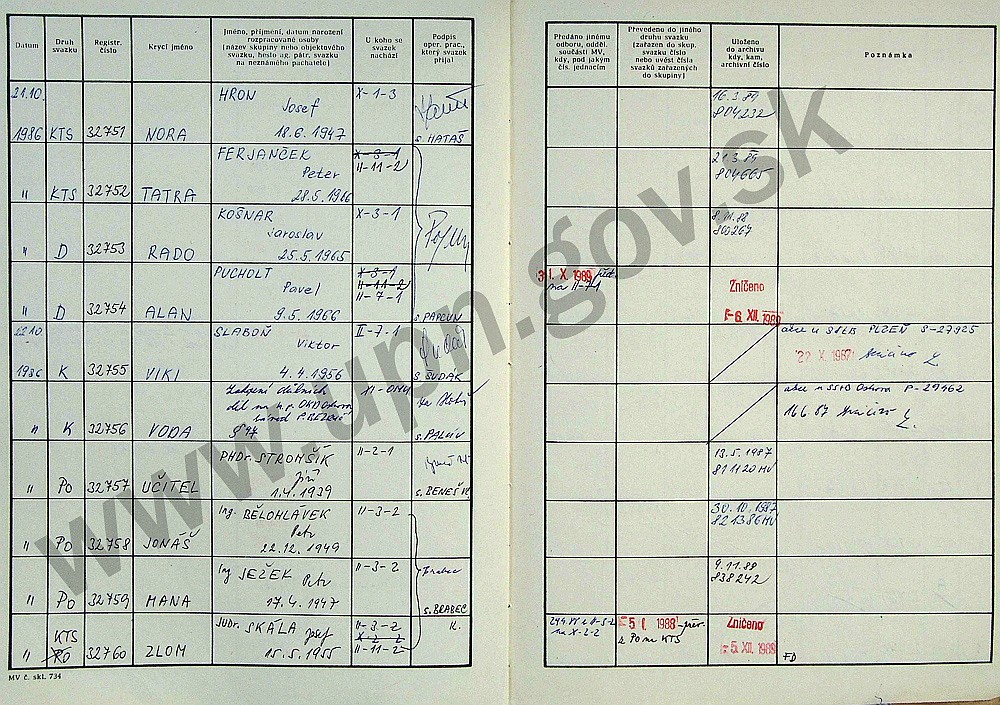 Datum
Druh svazku
Registr. číslo
Krycí jméno
Jméno, příjmení, datum narození
rozpracované osoby
(název skupiny nebo objektového
svazku, heslo ag. pátr. svazku
na neznámého pachatele)
U koho se
svazek
nachází
Podpis
oper. prac.,
který svazek
přijal
Předáno jinému
odboru, odděl.
součásti MV,
kdy, pod jakým
čís. jednacím
Převedeno do jiného
druhu svazku
(zařazen do skup.
svazku číslo
nebo uvést čísla
svazků zařazených
do skupiny)
Uloženo
do archivu
kdy, kam,
archivní číslo
Poznámka
21.10. HRON X-1-3 16.3.89
Josef 804232
1986 KTS 32751 NORA 18.6.1947 s. HATAŠ
FERJANČEK X-3-1 21.3.89
Peter II-11-2 804665
" KTS 32752 TATRA 28.5.1966
KOŠNAR X-3-1 8.11.88
Jaroslav 800267
" D 32753 RADO 25.5.1965
PUCHOLT X-3-1 31. X. 1989
Pavel II-11-2 na II-7-1 Zničeno
II-7-1
" D 32754 ALAN 9.5.1966 s. PAPCUN -6. XII. 1989
22.10 SLABOŇ II-7-1 akce u StB PLZEŇ S-27925
Viktor 22. X. 1987
1986 K 32755 VIKI 4.4.1956 s. ŠUDÁK
důlních XI- Ostrava P-29462
děl na n.p. OKD Ostrava 16.6.87
" K 32756 VODA § 97
PHDr. STROMŠÍK II-2-1 13.5.1987
Jiří 811120 MV
" Po 32757 UČITEL 1.4.1939 s. BENEŠ
Ing. BĚLOHLÁVEK II-3-2 30.10.1987
Petr 821386 MV
" Po 32758 JONÁŠ 22.12.1949
Ing JEŽEK II-3-2 Brabec 9.11.88
Petr 838242
" Po 32759 HANA 17.4.1947 s. BRABEC
JUDr. SKÁLA II-3-2 na X-2-2 5 I. 1988 Zničeno
KTS Josef X-2-2 z Po na KTS
" Po 32760 ZLOM 15.5.1955 II-11-2 -5. XII. 1989 FD
MV č. skl. 734
www.upn.gov.sk